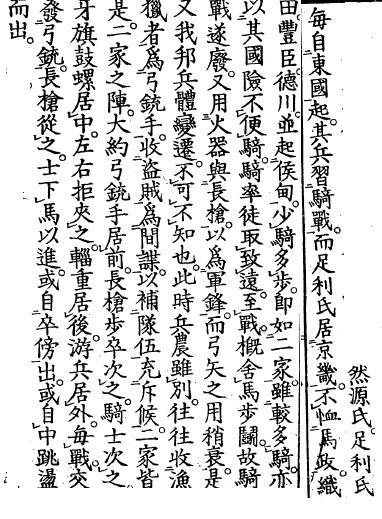 然源氏足利氏
每自東國起。其兵習騎戰。而足利氏居京畿。不恤馬政。織
田豐臣德川。並起侯甸。少騎多步。卽如二家。雖較多騎。亦
以其國險不便騎。騎率徒取致遠。至戰槪舍馬步鬭。故騎
戰遂廢。又用火器與長槍。以爲軍鋒。而弓矢之用稍衰。是
又我邦兵體變遷。不可不知也。此時兵農雖別。往往收漁
獵者爲弓銃手。收盜賊爲間諜。以補隊伍充斥候。二家皆
是。二家之陣。大約弓銃手居前。長槍步卒次之。騎士次之。
牙旗鼓螺居中。左右拒夾之。輜重居後。游兵居外。每戰交
發弓銃。長槍從之。士下馬以進。或自卒傍出。或自中跳盪
而出。